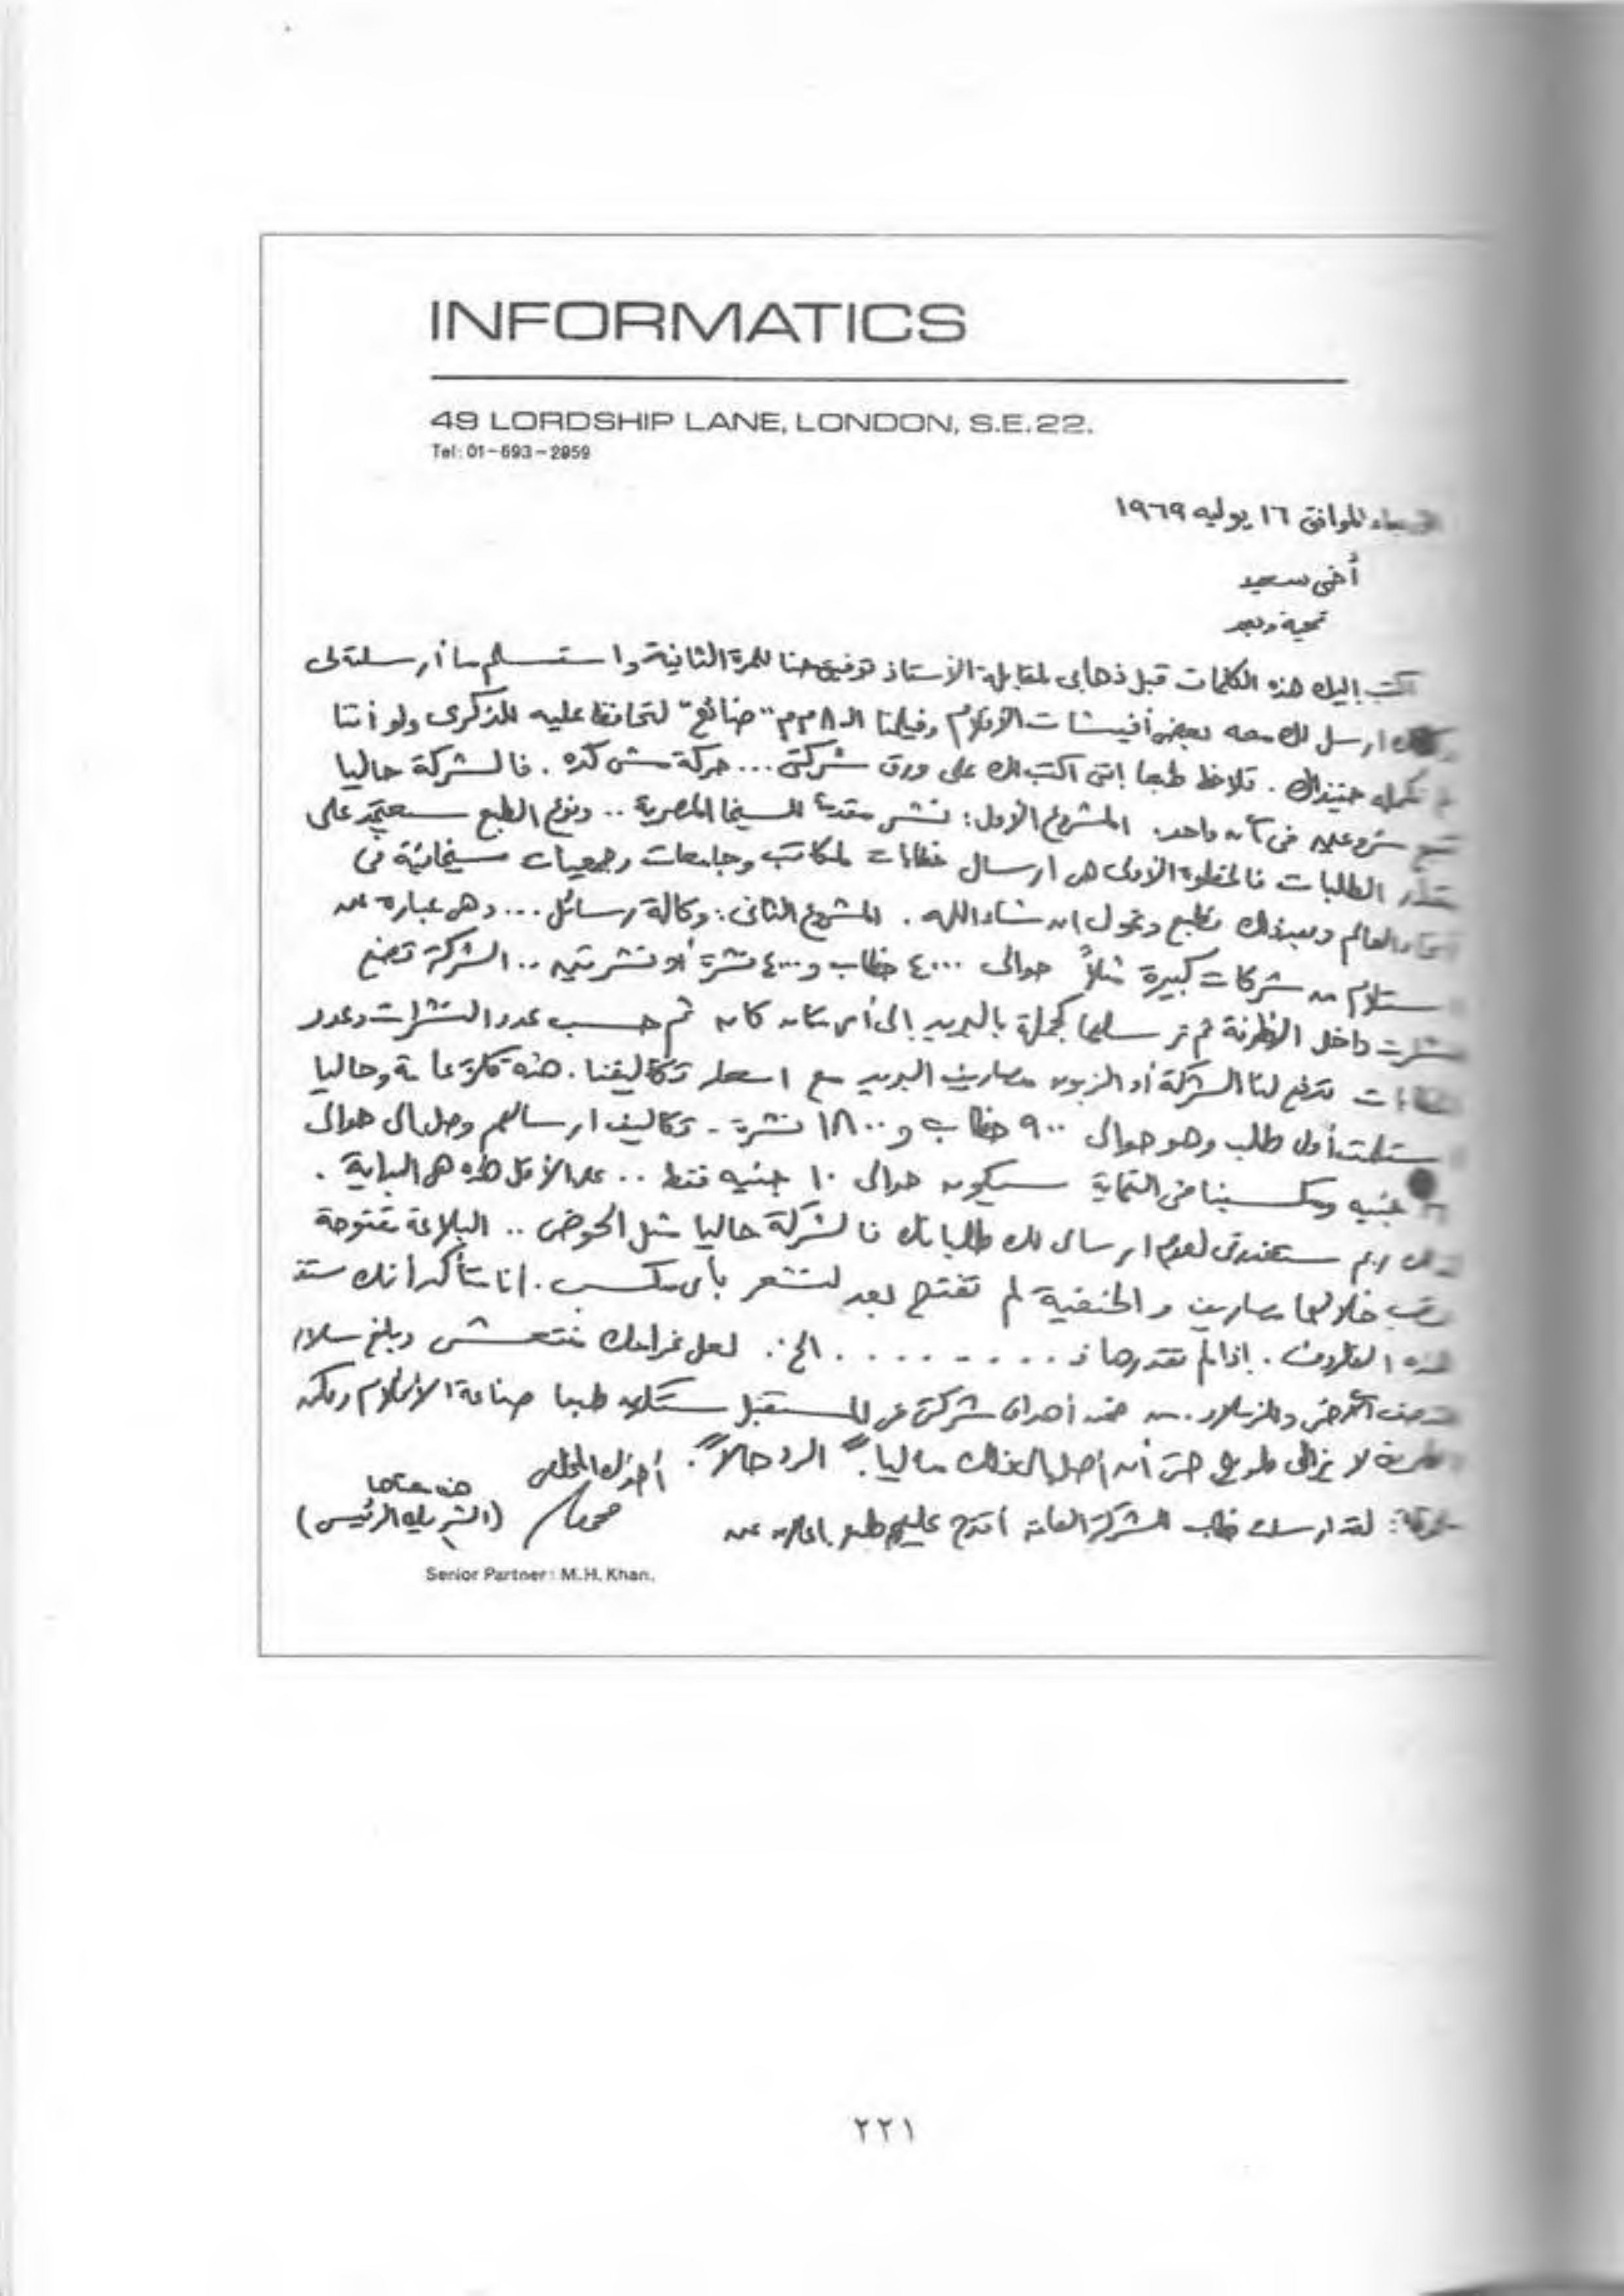 INFORMATICS
49 LORDSHIP LANE, LONDON, S.E.22.
Tel: 01-693-2959
الموافق ١٦ يوليه ١٩٦٩
أخى سعيد
تحية وبعد
اكتب إليك هذه الكلمات قبل ذهابى لمقابلة الأستاذ توفيق حنا للمرة الثانية واستلم ما أرسلته لى
ارسل لك معه بعض أفيشات الأفلام وفيلمنا الـ ٨ مم "ضائع" لتحافظ عليه للذكرى ولو أننا
لم نكمله حينذاك. تلاحظ طبعا إننى اكتب لك على ورق شركتى... حركة مش كده. فالشركة حاليا
مشروعين فى آن واحد. المشروع الأول: نشر مقدمة للسينما المصرية .. ونوع الطبع سيعتمد على
الطلبات فالخطوة الأولى هى ارسال خطابات لمكاتب وجامعات وجمعيات سينمائية فى
العالم وبعد ذلك نطبع ونمول ان شاء الله. المشروع الثانى: وكالة رسائل... وهى عبارة عن
استلام من شركات كبيرة مثلاً حوالى ٤٠٠٠ خطاب و ٤٠٠٠ نشرة أو نشرتين .. الشركة تضع
داخل الأظرفة ثم ترسلها كجملة بالبريد إلى أى مكان كان ثم حسب عدد النشرات وعدد
تدفع لنا الشركة أو الزبون مصاريف البريد مع اسعار تكاليفنا. هذه فكرة عامة وحاليا
استلمت أول طلب وهو حوالى ٩٠٠ خطاب و ١٨٠٠ نشرة - تكاليف ارسالهم وصل الى حوالى
جنيه ومكسبنا فى النهاية سيكون حوالى ١٠ جنيه فقط .. على الأقل هذه هى البداية.
ستعذرنى لعدم ارسالى لك طلباتك فالشركة حاليا مثل الحوض .. البلاعة مفتوحة
خلالها مصاريف والحنفية لم تفتح بعد لنشعر بأى مكسب. انا متأكد أنك ستقدر
هذه الظروف. إذا لم تقدرها فـ ......... الخ. لعل غرامك منتعش وبلغ سلامى
من ضمن أهداف شركتى فى المستقبل ستكون طبعا صناعة الأفلام ولكن
الطريق لا يزال طويل حتى أن أصل إلى هذا ماليا. "الرد حالاً".
أخوك المخلص
محمد
(الشريك الرئيسى)
لقد ارسلت خطاب للشركة العامة أقترح عليهم
Senior Partner: M.H. Khan.
٢٢١